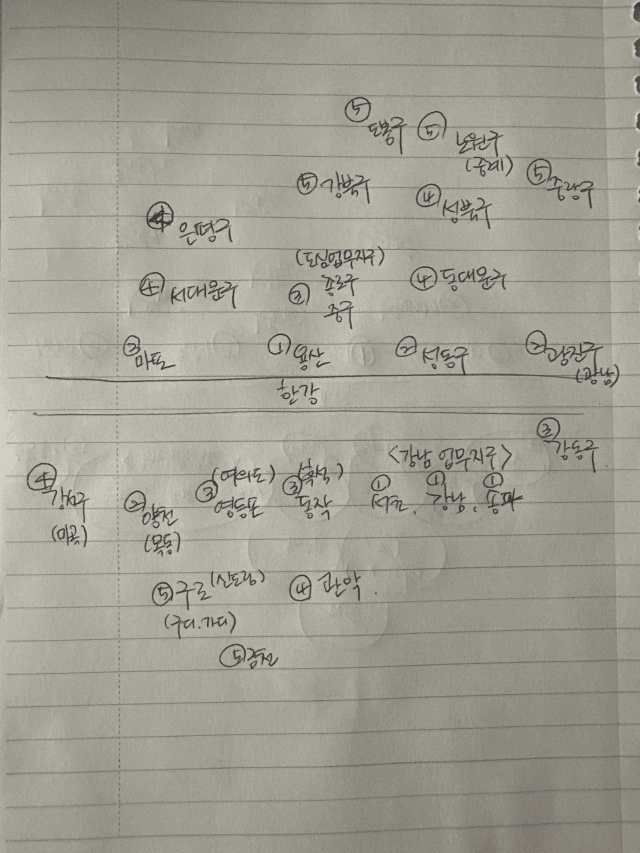 ⑤ 도봉구 ⑤ 노원구
(중계)
⑤ 강북구 ④ 성북구 ⑤ 중랑구
④ 은평구
(도심업무지구)
④ 서대문구 ② 종로구 ④ 동대문구
중구
③ 마포 ① 용산 ② 성동구 ② 광진구
(광남)
한강
③ 강동구
<강남 업무지구>
(여의도) (흑석)
④ 강서구 ② 양천 ③ 영등포 ③ 동작 ① 서초, ① 강남, ① 송파
(마곡) (목동)
⑤ 구로 (신도림) ④ 관악.
(구디.가디)
⑤ 금천